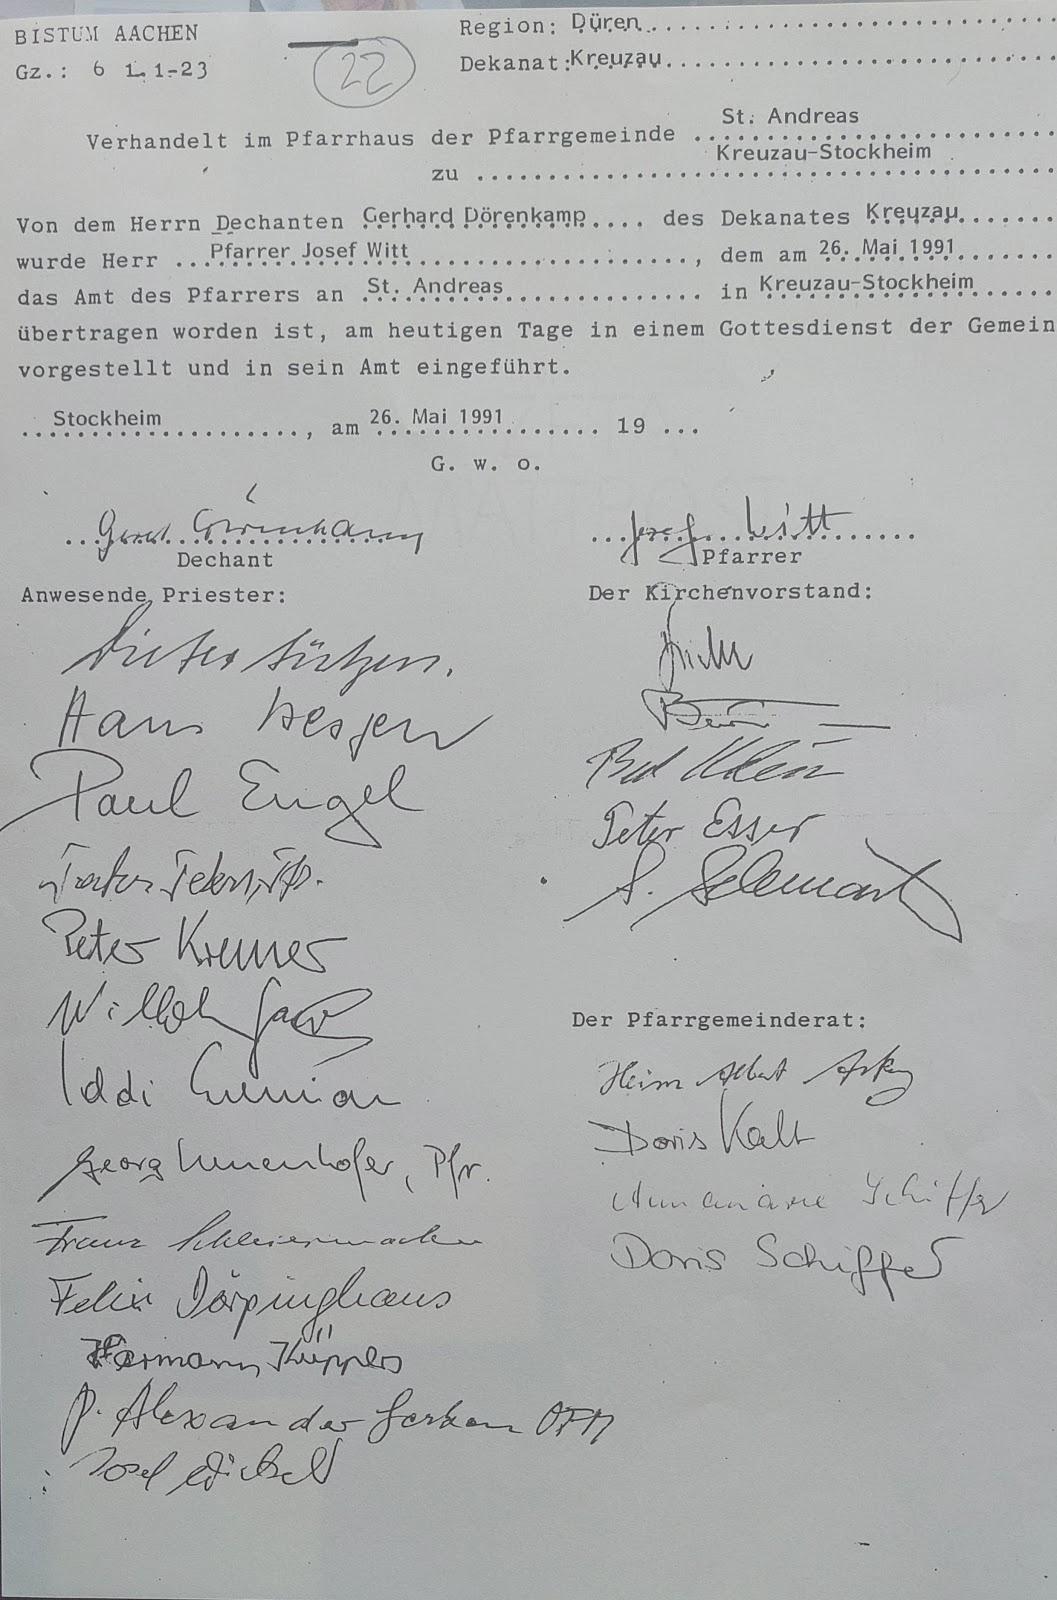 BISTUM AACHEN
Gz.: 6 1.1-23
22
Region: Düren
Dekanat: Kreuzau
Verhandelt im Pfarrhaus der Pfarrgemeinde St. Andreas
zu Kreuzau-Stockheim
Von dem Herrn Dechanten Gerhard Dörenkamp .... des Dekanates Kreuzau
wurde Herr ... Pfarrer Josef Witt ..., dem am 26. Mai 1991
das Amt des Pfarrers an St. Andreas ... in Kreuzau-Stockheim
übertragen worden ist, am heutigen Tage in einem Gottesdienst der Gemein
vorgestellt und in sein Amt eingeführt.
Stockheim ..., am 26. Mai 1991 ... 19 ...
G. w. o.
Josef Witt
Dechant
Pfarrer
Anwesende Priester:
Dieter
Hans
Paul Engel
Peter Kremer
Georg , Pfr.
Franz Schleiermacher
Felix Dörpinghaus
Hermann Küppers
P. Alexander Gerken OFM
Josef
Der Kirchenvorstand:
Klein
Peter Esser
Der Pfarrgemeinderat:
Albert
Doris Kalt
Annemarie Schiffer
Doris Schiffer